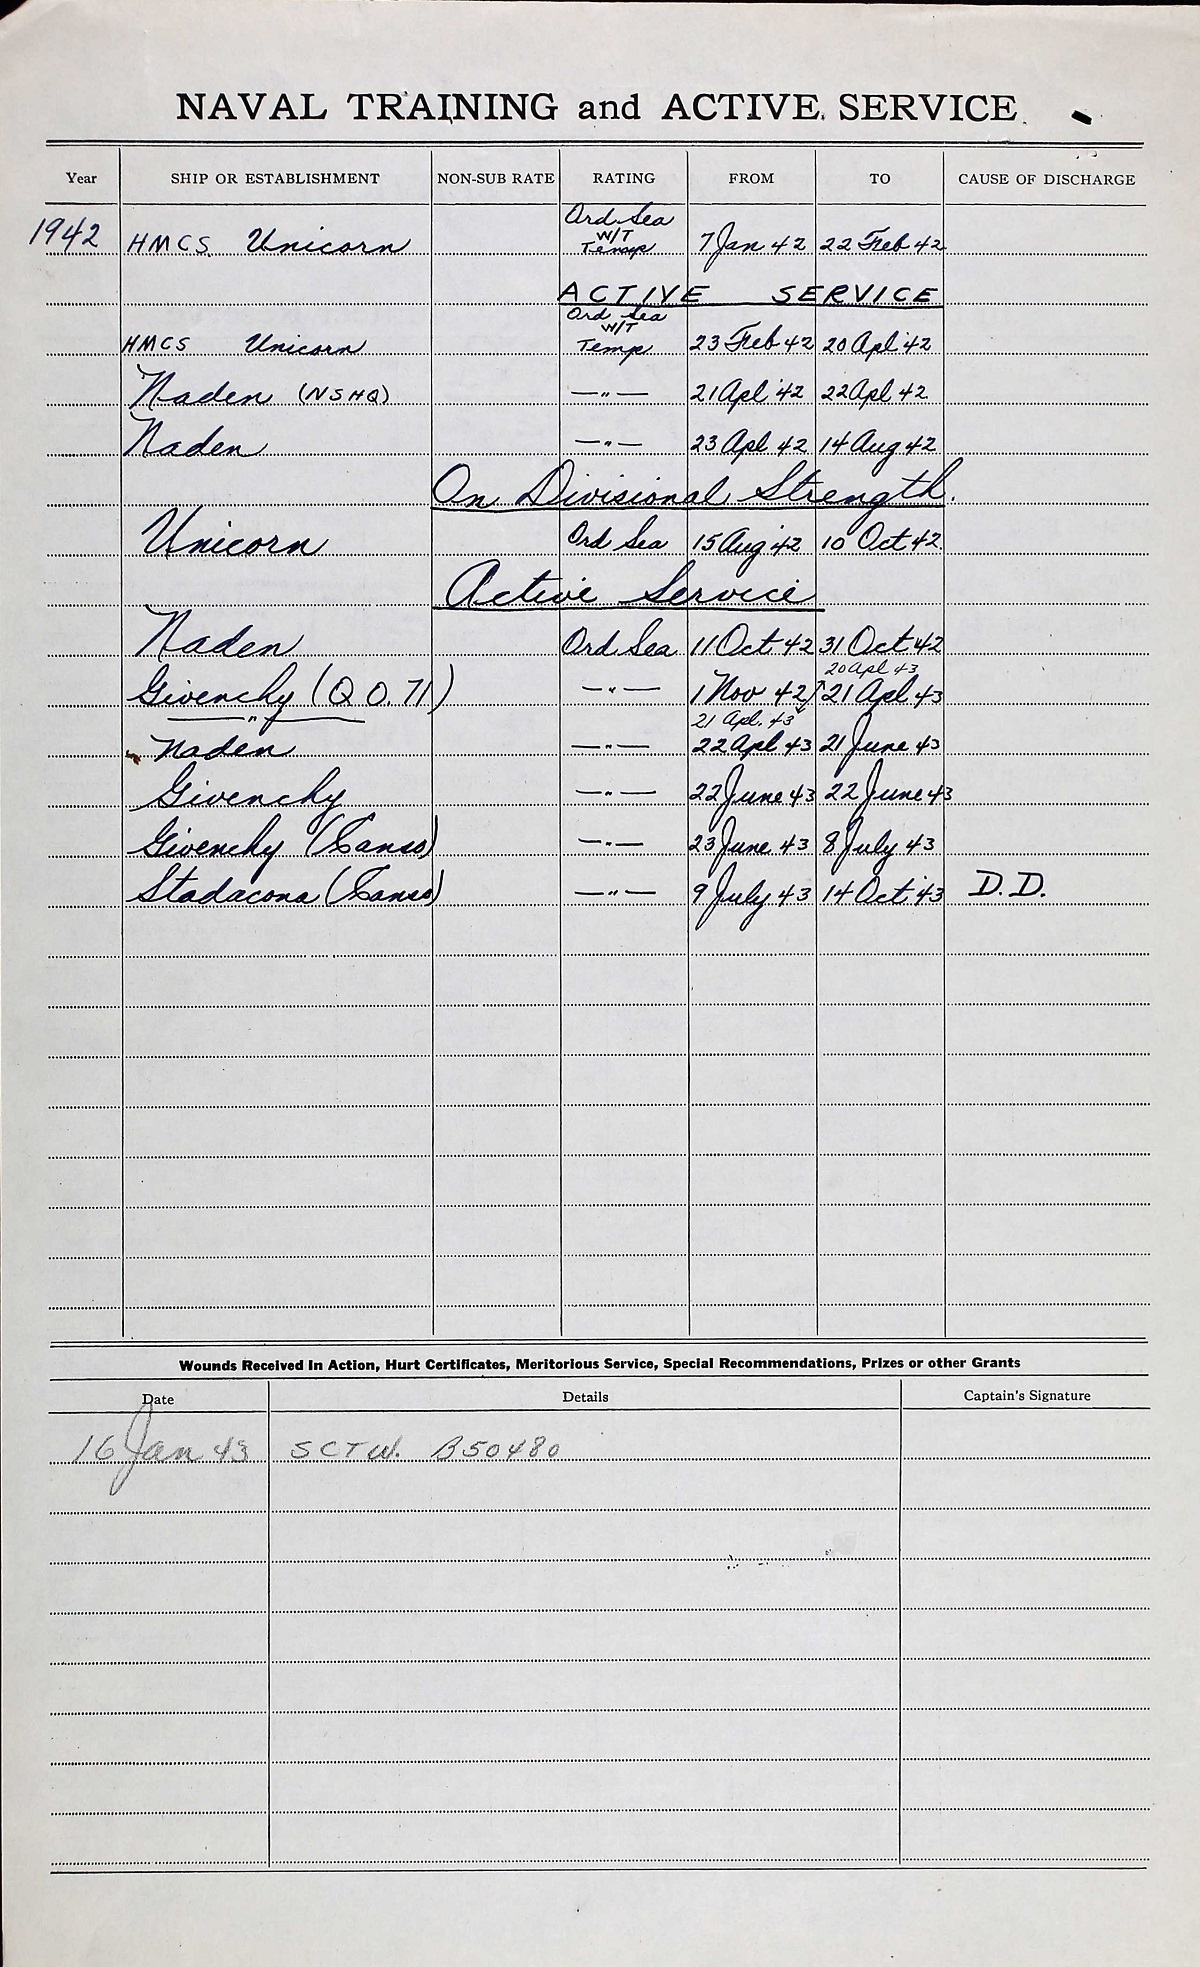 NAVAL TRAINING and ACTIVE SERVICE
Year SHIP OR ESTABLISHMENT NON-SUB RATE RATING FROM TO CAUSE OF DISCHARGE
1942 HMCS Unicorn Ord Sea W/T Temp 7 Jan 42 22 Feb 42
ACTIVE SERVICE
HMCS Unicorn Ord Sea W/T Temp 23 Feb 42 20 Apl 42
Naden (NSHQ) —"— 21 Apl 42 22 Apl 42
Naden —"— 23 Apl 42 14 Aug 42
On Divisional Strength.
Unicorn Ord Sea 15 Aug 42 10 Oct 42
Active Service
Naden Ord Sea 11 Oct 42 31 Oct 42
20 Apl 43
Givenchy (Q O. 71) —"— 1 Nov 42 21 Apl 43
—"— 21 Apl. 43
Naden —"— 22 Apl 43 21 June 43
Givenchy —"— 22 June 43 22 June 43
Givenchy (Canso) —"— 23 June 43 8 July 43
Stadacona (Canso) —"— 9 July 43 14 Oct 43 D.D.
Wounds Received In Action, Hurt Certificates, Meritorious Service, Special Recommendations, Prizes or other Grants
Date Details Captain's Signature
16 Jan 43 SCTW. B50480